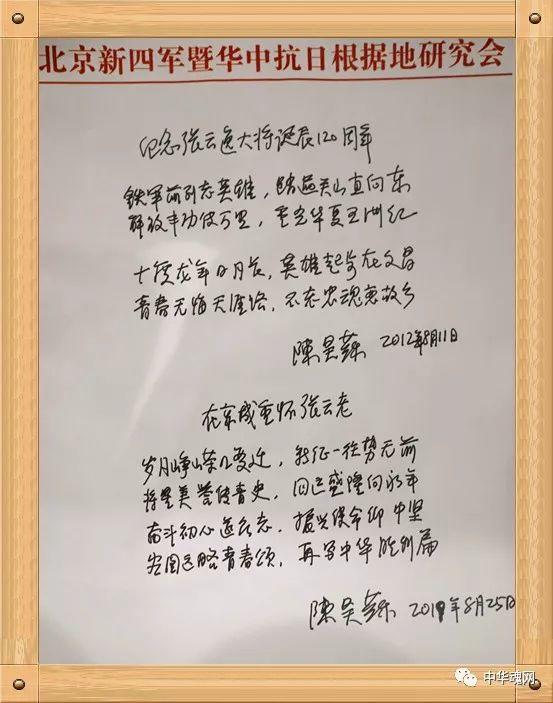 北京新四军暨华中抗日根据地研究会
纪念张云逸大将诞辰120周年
铁军前列志英雄，踏遍关山直向东
解放丰功 万里，重光华夏五洲红
十度龙年日月长，英雄起步在文昌
青春无悔天涯路，不 忠魂惠故乡
陳昊蘇 2012年8月11日
在京 重怀张云老
岁月峥嵘几变迁，新征一往势无前
将星美誉传青史，国运盛隆向永年
奋斗初心追远志，振兴使命仰中坚
宏图远略青春颂，再写中华胜利篇
陳昊蘇 2019年8月25日
中华魂网